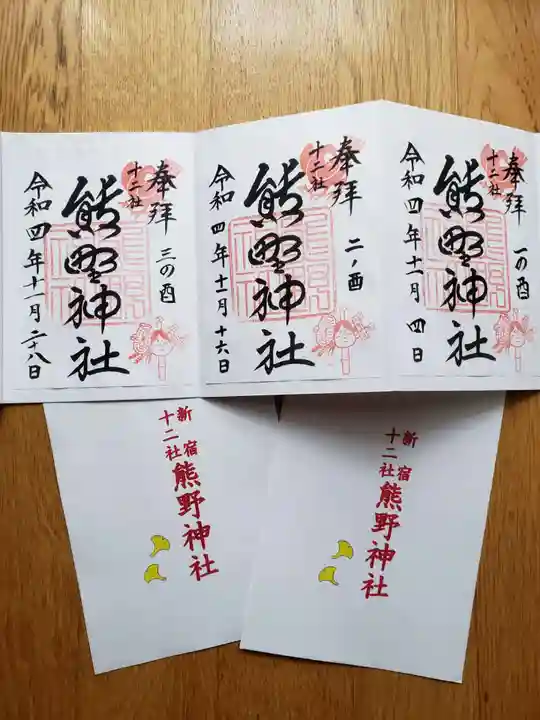 奉拝
十二社
一の酉
熊野神社
令和四年十一月四日
奉拝
十二社
二ノ酉
熊野神社
令和四年十一月十六日
奉拝
十二社
三の酉
熊野神社
令和四年十一月二十八日
新宿
十二社
熊野神社
新宿
十二社
熊野神社